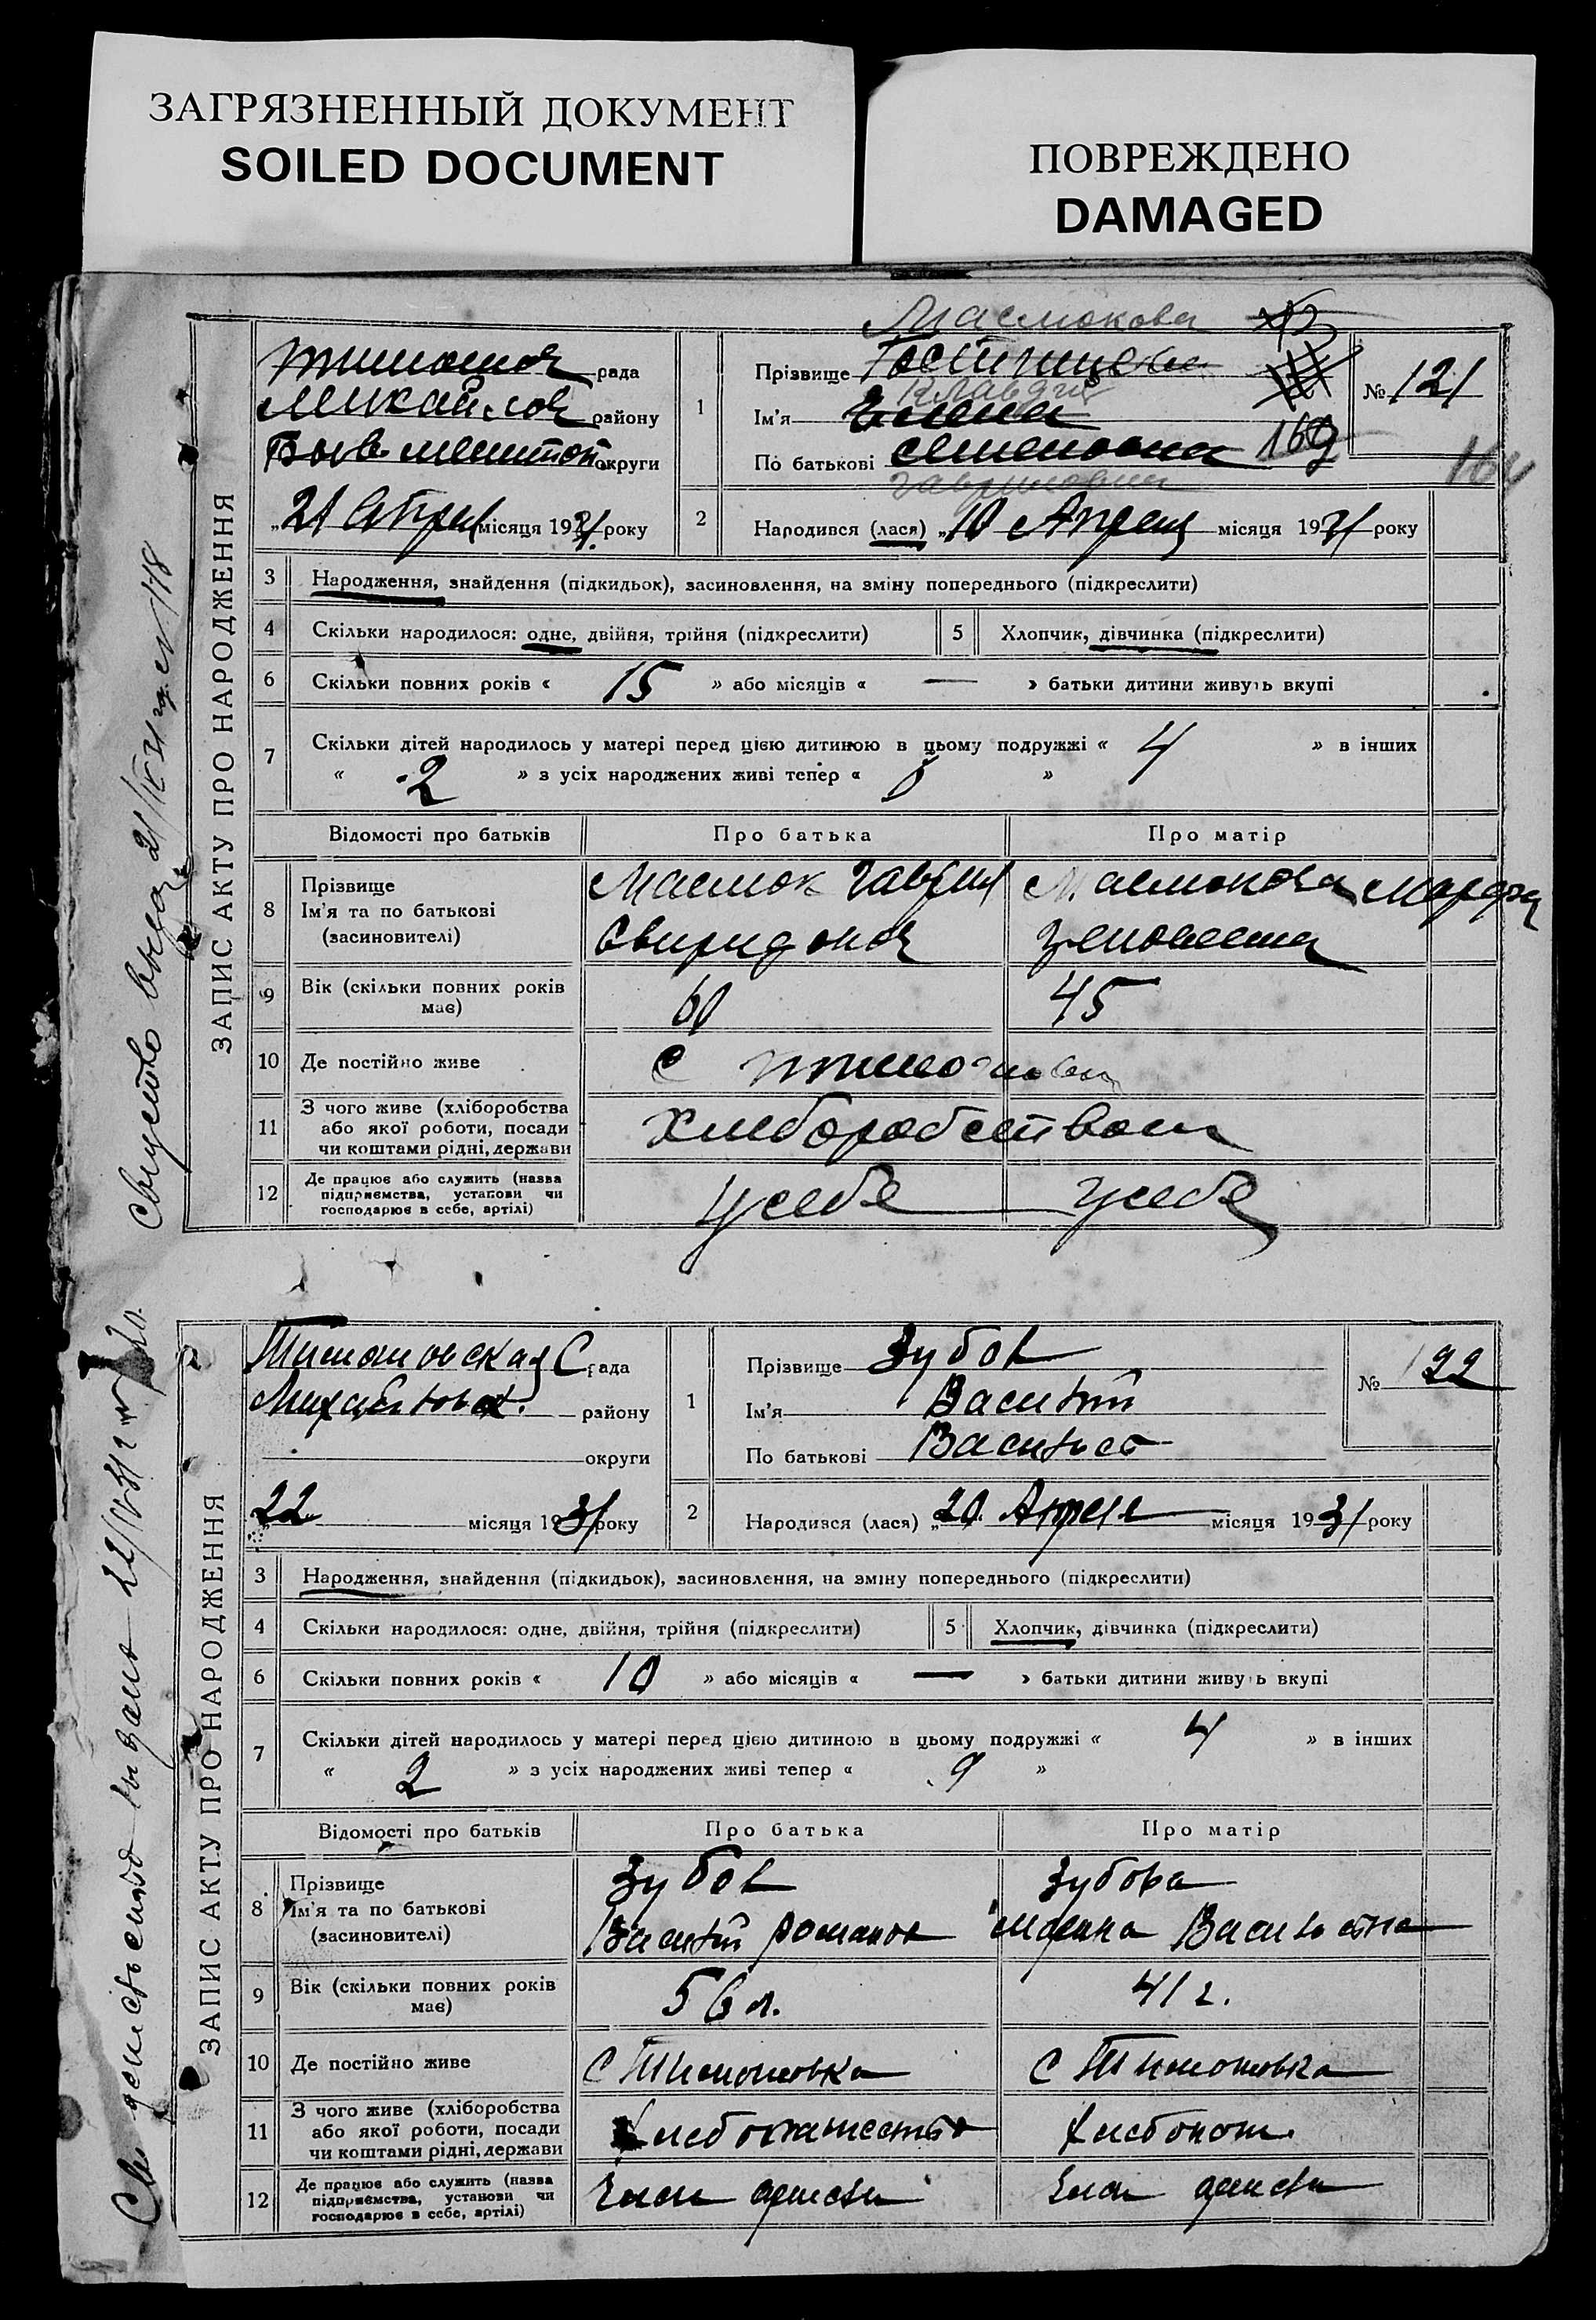 ЗАГРЯЗНЕННЫЙ ДОКУМЕНТ
SOILED DOCUMENT
ПОВРЕЖДЕНО
DAMAGED
ЗАПИС АКТУ ПРО НАРОДЖЕННЯ
рада
району
округи
21 Апрел місяця 1931 року
1
Маслюкова
Прізвище
Клавдия
Ім'я Елена
По батькові Семеновна 169
Гавриловна
№ 121
2 Народився (лася) „10 Апреля місяця 1931 року
3 Народження, знайдення (підкидьок), засиновлення, на зміну попереднього (підкреслити)
4 Скільки народилося: одне, двійня, трійня (підкреслити) 5 Хлопчик, дівчинка (підкреслити)
6 Скільки повних років « 15 » або місяців « — » батьки дитини живуть вкупі
7 Скільки дітей народилось у матері перед цією дитиною в цьому подружжі « 4 » в інших
« 2 » з усіх народжених живі тепер « »
Відомості про батьків Про батька Про матір
8 Прізвище
Ім'я та по батькові
(засиновителі)
Маслюк Гаврил
Свиридонов
Маслюкова Марфа
9 Вік (скільки повних років має) 60 45
10 Де постійно живе с
11 З чого живе (хліборобства або якої роботи, посади чи коштами рідні, держави Хлеборобством
12 Де працює або служить (назва підприємства, установи чи господарює в себе, артілі) у себе у себе
ЗАПИС АКТУ ПРО НАРОДЖЕННЯ
Тимошовская С рада
Михайловск. району
округи
22 місяця 1931 року
1
Прізвище Зубов
Ім'я Василий
По батькові Васильев
№ 122
2 Народився (лася) „20 Апреля місяця 1931 року
3 Народження, знайдення (підкидьок), засиновлення, на зміну попереднього (підкреслити)
4 Скільки народилося: одне, двійня, трійня (підкреслити) 5 Хлопчик, дівчинка (підкреслити)
6 Скільки повних років « 10 » або місяців « — » батьки дитини живуть вкупі
7 Скільки дітей народилось у матері перед цією дитиною в цьому подружжі « 4 » в інших
« 2 » з усіх народжених живі тепер « 9 »
Відомості про батьків Про батька Про матір
8 Прізвище
Ім'я та по батькові
(засиновителі)
Зубов
Василий Романов
Зубова
Марина Васильевна
9 Вік (скільки повних років має) 56 л. 41 г.
10 Де постійно живе с Тимошовка с Тимошовка
11 З чого живе (хліборобства або якої роботи, посади чи коштами рідні, держави Хлебопашество Хлебопаш.
12 Де працює або служить (назва підприємства, установи чи господарює в себе, артілі)